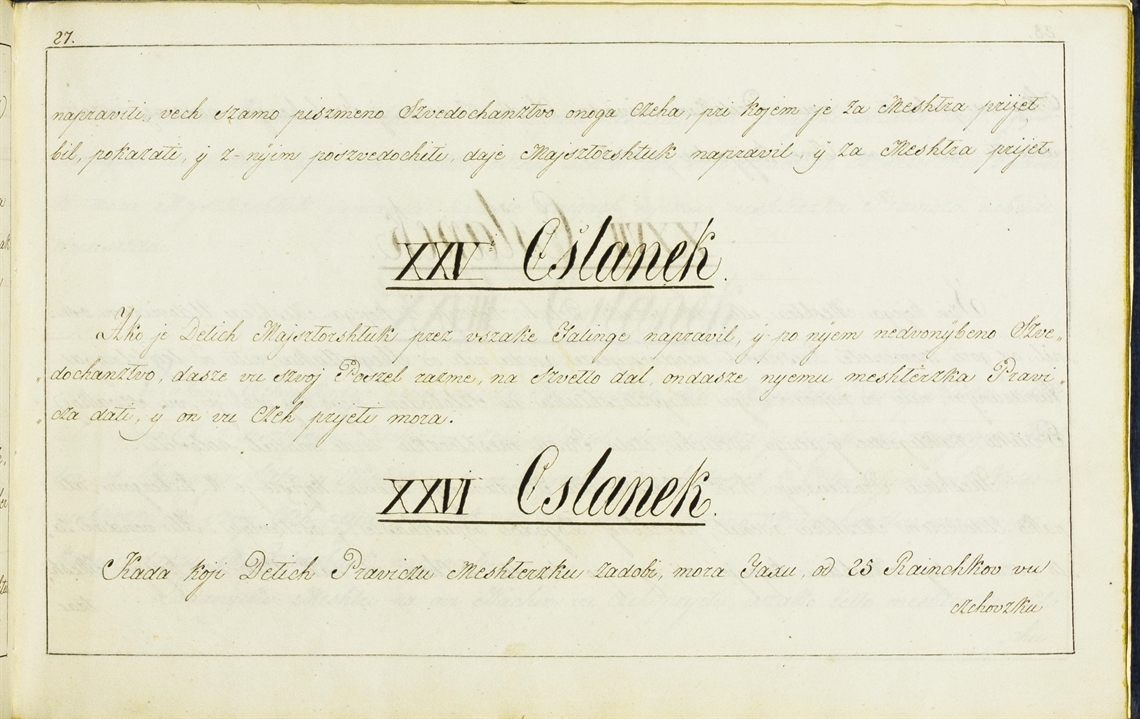 27.
napraviti, vech szamo piszmeno Szvedochanztvo onoga Czeha, pri kojem je za Meshtra prijet
bil, pokazati, ÿ z-nÿim poszvedochiti, daje Majsztorshtuk napravil, ÿ za Meshtra prijet
XXV Cslanek.
Ako je Detich Majsztorshtuk prez vszake Falinge napravil, ÿ po nÿem nedvonybeno Szve-
dochanztvo, dasze vu szvoj Poszel razme, na Szvetlo dal, ondasze nyemu meshterzka Pravi-
cza dati, ÿ on vu Czeh prijeti mora.
XXVI Cslanek.
Kada koji Detich Praviczu Meshterzku zadobi, mora Taxu, od 25 Rainchkov vu
czehovzku